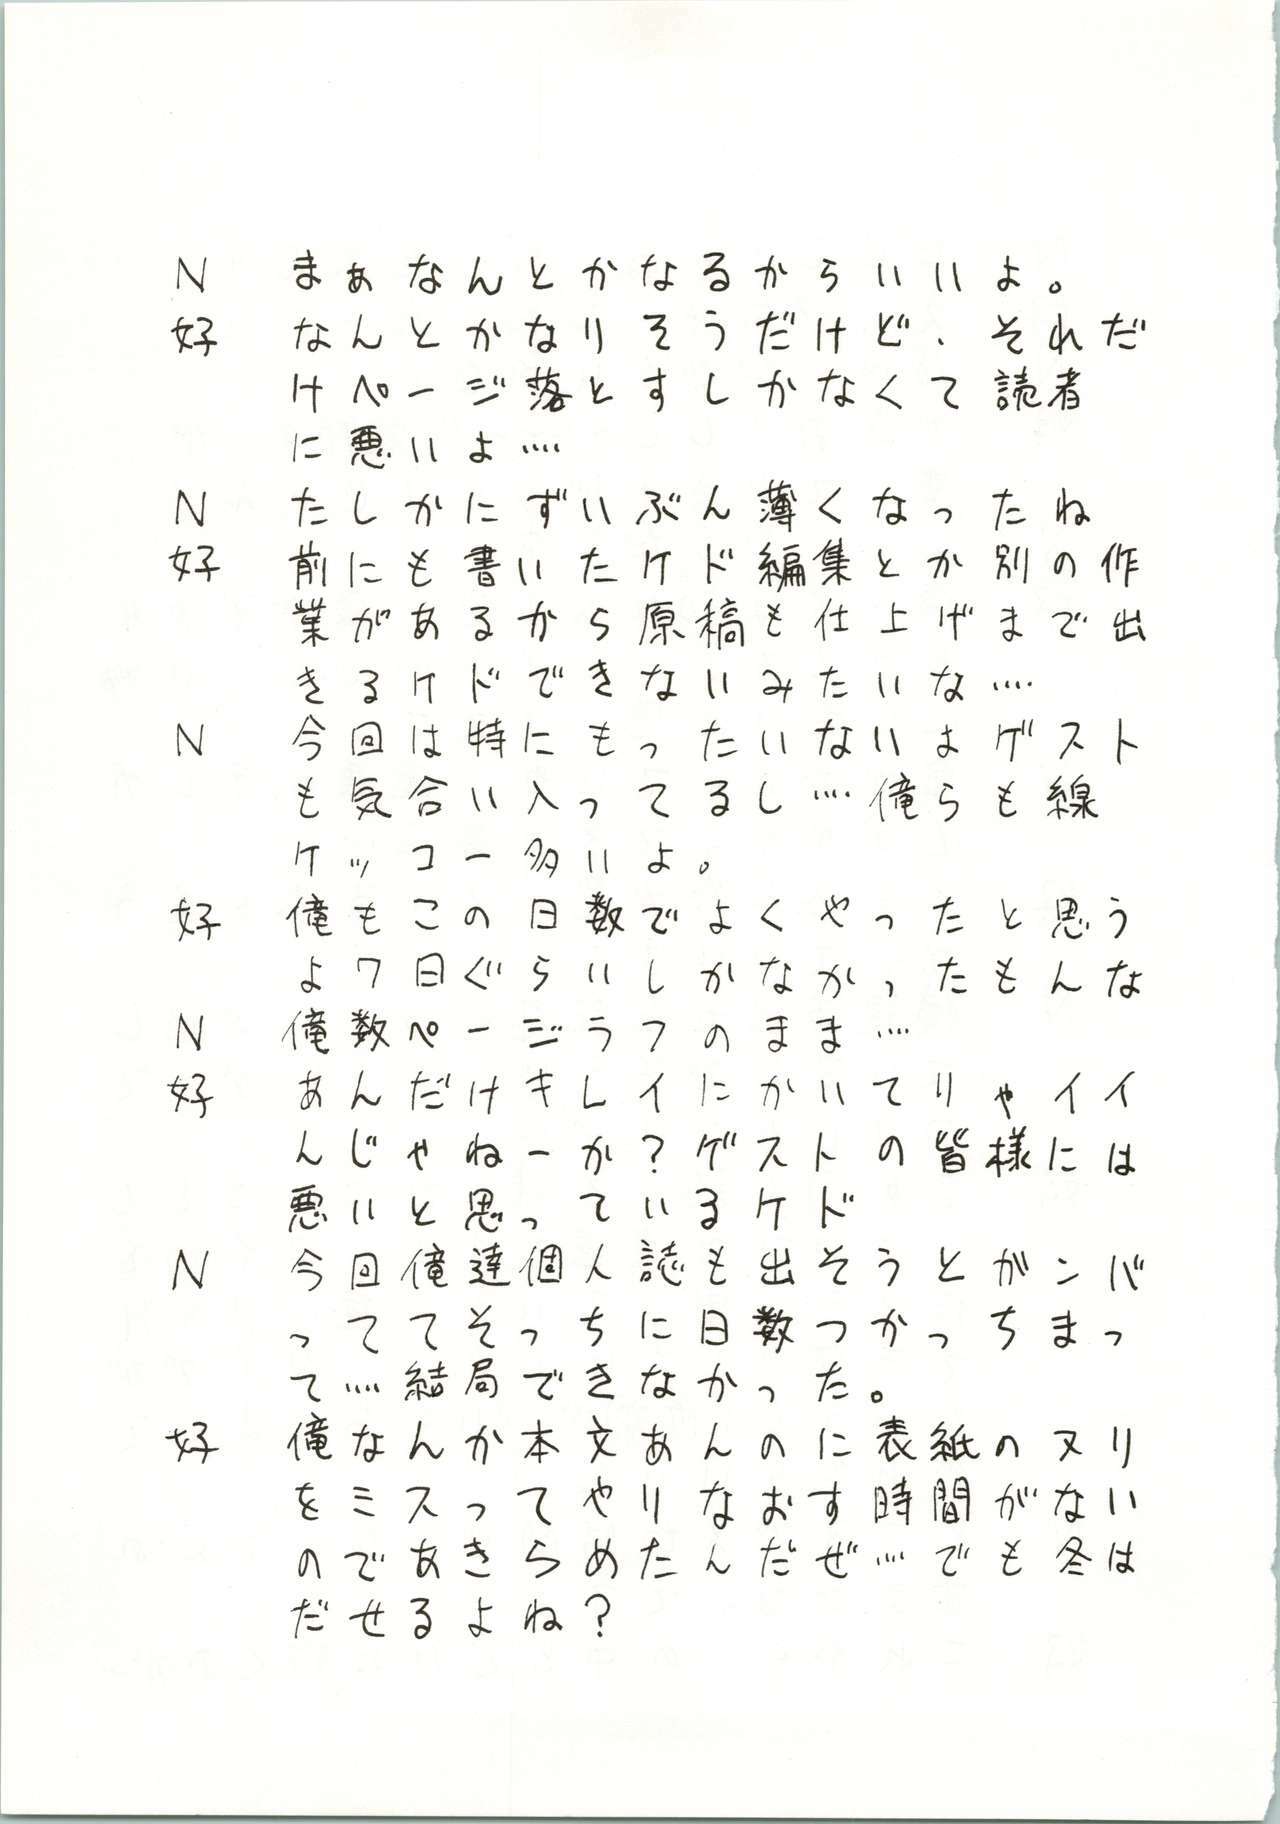 N まぁなんとかなるからいいよ。
好 なんとかなりそうだけど、それだ
けページ落とすしかなくて読者
に悪いよ‥‥
N たしかにずいぶん薄くなったね
好 前にも書いたケド編集とか別の作
業があるから原稿も仕上げまで出
きるケドできないみたいな‥‥
N 今回は特にもったいないよゲスト
も気合い入ってるし‥‥俺らも線
ケッコー多いよ。
好 俺もこの日数でよくやったと思う
よ7日ぐらいしかなかったもんな
N 俺数ページラフのまま‥‥
好 あんだけキレイにかいてりゃイイ
んじゃねーか?ゲストの皆様には
悪いと思っているケド
N 今回俺達個人誌も出そうとガンバ
っててそっちに日数つかっちまっ
て‥‥結局できなかった。
好 俺なんか本文あんのに表紙のヌリ
をミスってやりなおす時間がない
のであきらめたんだぜ‥‥でも冬は
だせるよね?